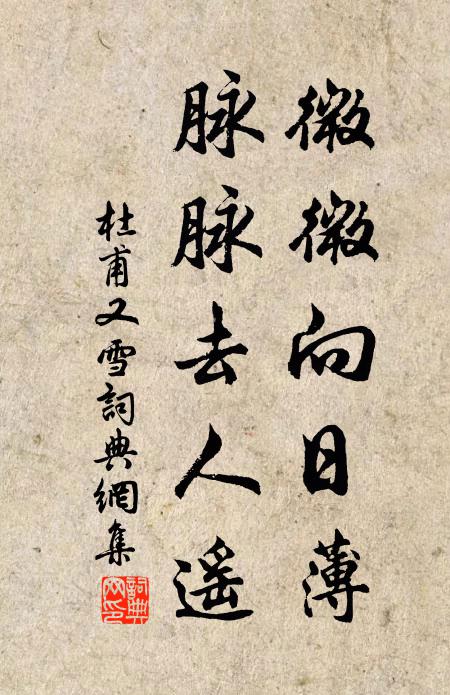 微微向日薄
脉脉去人遥
杜甫又雪詞典網集
詞典